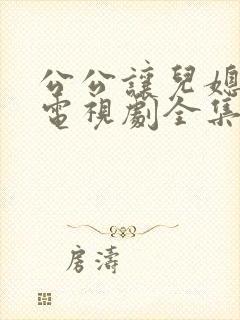 公公讓兒媳
電視劇全集
房濤